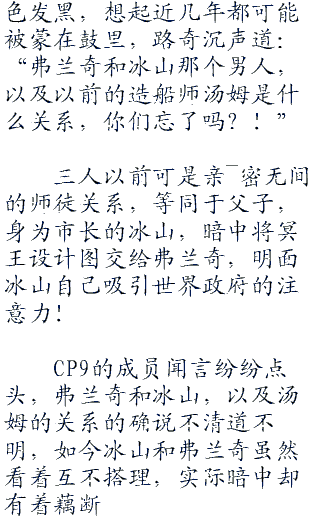 色发黑，想起近几年都可能
被蒙在鼓里，路奇沉声道：
“弗兰奇和冰山那个男人，
以及以前的造船师汤姆是什
么关系，你们忘了吗？！”
三人以前可是亲¯密无间
的师徒关系，等同于父子，
身为市长的冰山，暗中将冥
王设计图交给弗兰奇，明面
冰山自己吸引世界政府的注
意力！
CP9的成员闻言纷纷点
头，弗兰奇和冰山，以及汤
姆的关系的确说不清道不
明，如今冰山和弗兰奇虽然
看着互不搭理，实际暗中却
有着藕断